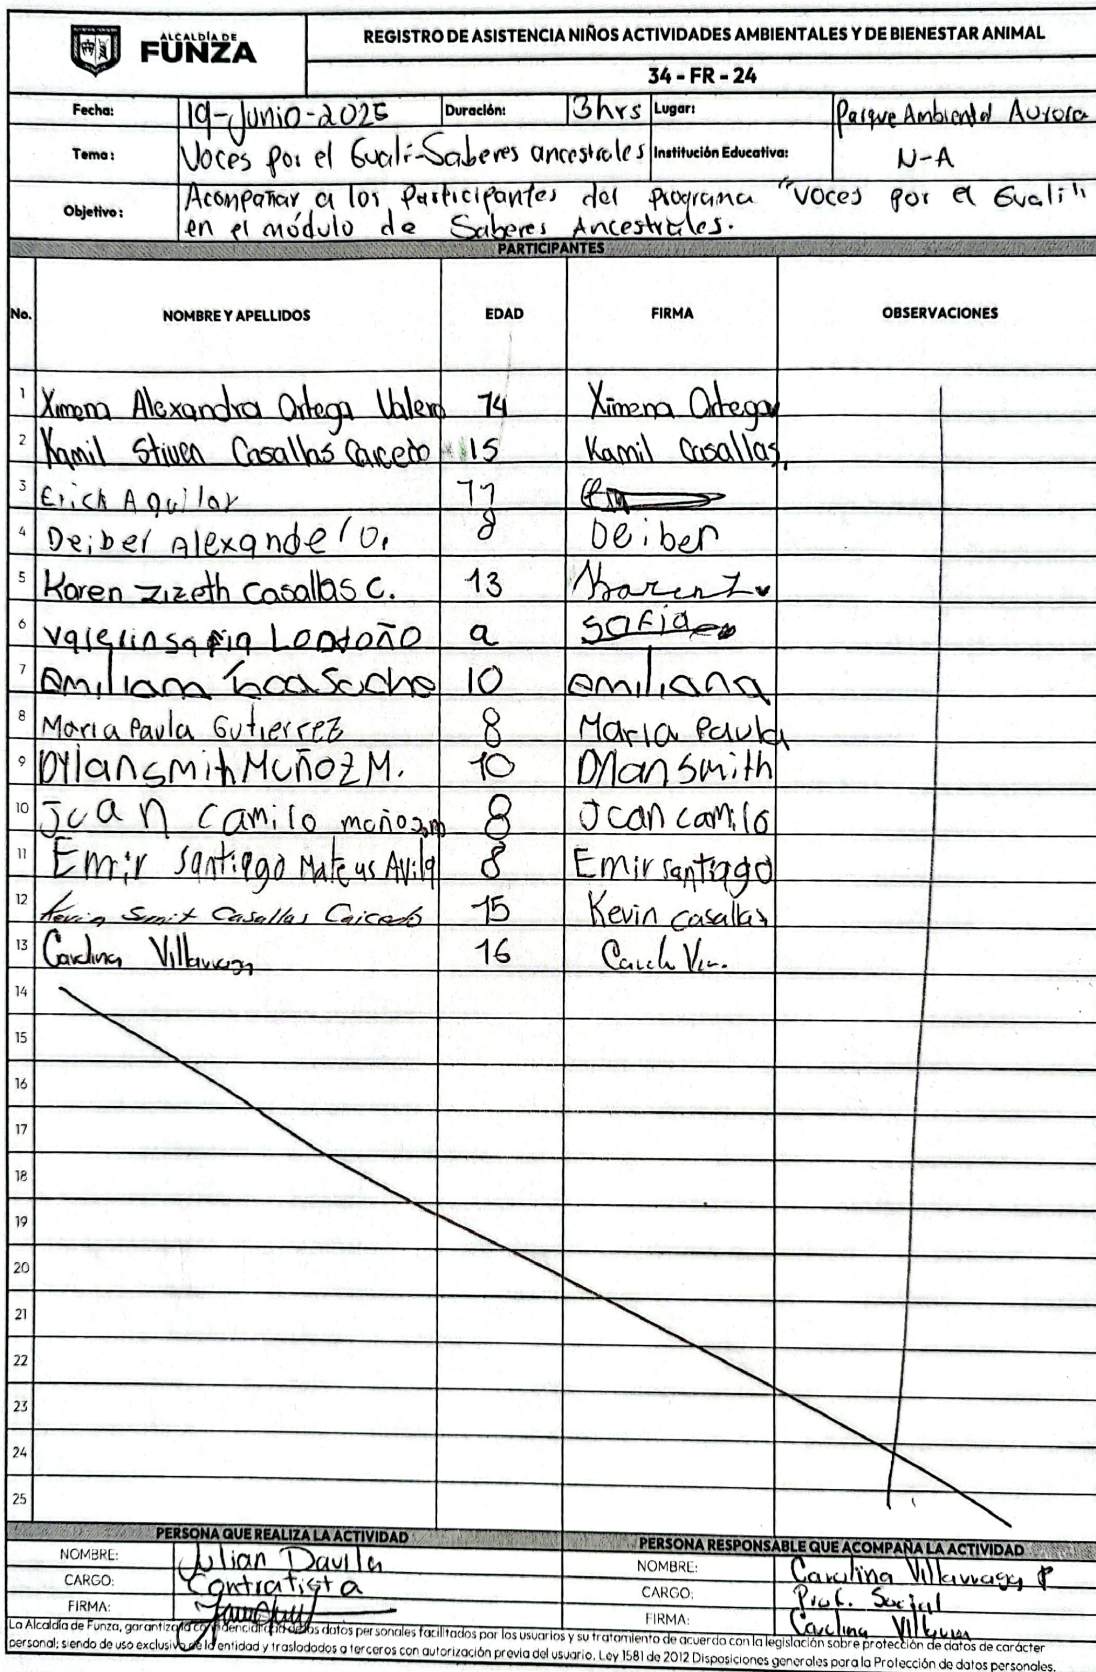 ALCALDÍA DE
FUNZA
REGISTRO DE ASISTENCIA NIÑOS ACTIVIDADES AMBIENTALES Y DE BIENESTAR ANIMAL
34 - FR - 24
Fecha: 19-Junio-2025 Duración: 3hrs Lugar: Parque Ambiental Aurora
Tema: Voces por el Gualí-Saberes ancestrales Institución Educativa: N-A
Objetivo: Acompañar a los Participantes del programa "Voces por el Gualí"
en el módulo de Saberes Ancestrales.
PARTICIPANTES
No. NOMBRE Y APELLIDOS EDAD FIRMA OBSERVACIONES
1 Ximena Alexandra Ortega Valero 14 Ximena Ortega
2 Kamil Stiven Casallas Caicedo 15 Kamil Casallas
3 Erick Aguilar 11
4 Deiber Alexander O. 8 Deiber
5 Karen Zizeth Casallas C. 13 Karen Z
6 Valerin Sofia Londoño 9 Sofia
7 Emiliana 10 emiliana
8 Maria Paula Gutierrez 8 Maria Paula
9 Dylan Smith Muñoz M. 10 Dylan Smith
10 Juan Camilo muñoz m 8 Juan camilo
11 Emir Santiago Mateus Avila 8 Emir santiago
12 Kevin Smit Casallas Caicedo 15 Kevin casallas
13 Carolina Villarraga 16
14
15
16
17
18
19
20
21
22
23
24
25
PERSONA QUE REALIZA LA ACTIVIDAD PERSONA RESPONSABLE QUE ACOMPAÑA LA ACTIVIDAD
NOMBRE: Julian Davila NOMBRE: Carolina Villarraga P
CARGO: Contratista CARGO: Prof. Social
FIRMA: FIRMA: Carolina Villarraga
La Alcaldía de Funza, garantiza la confidencialidad de los datos personales facilitados por los usuarios y su tratamiento de acuerdo con la legislación sobre protección de datos de carácter
personal; siendo de uso exclusivo de la entidad y trasladados a terceros con autorización previa del usuario. Ley 1581 de 2012 Disposiciones generales para la Protección de datos personales.